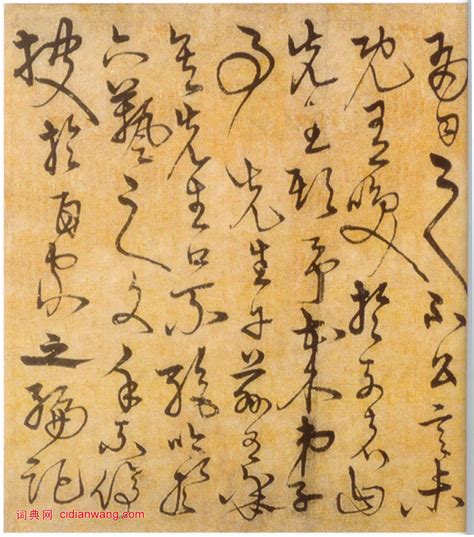 有司之不公言未
既有笑於列者曰
先生欺予哉弟子
事先生于茲有年
矣先生口不絕吟於
六藝之文手不停
披於百家之編記
词典网 cidianwang.com